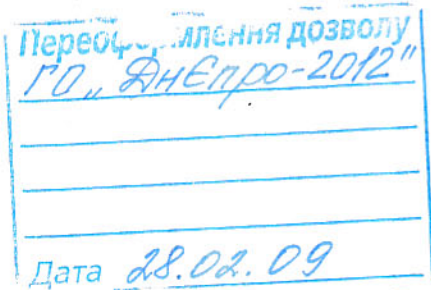 Переоформлення дозволу
ГО „ДнЄпро-2012"
Дата 28.02.09